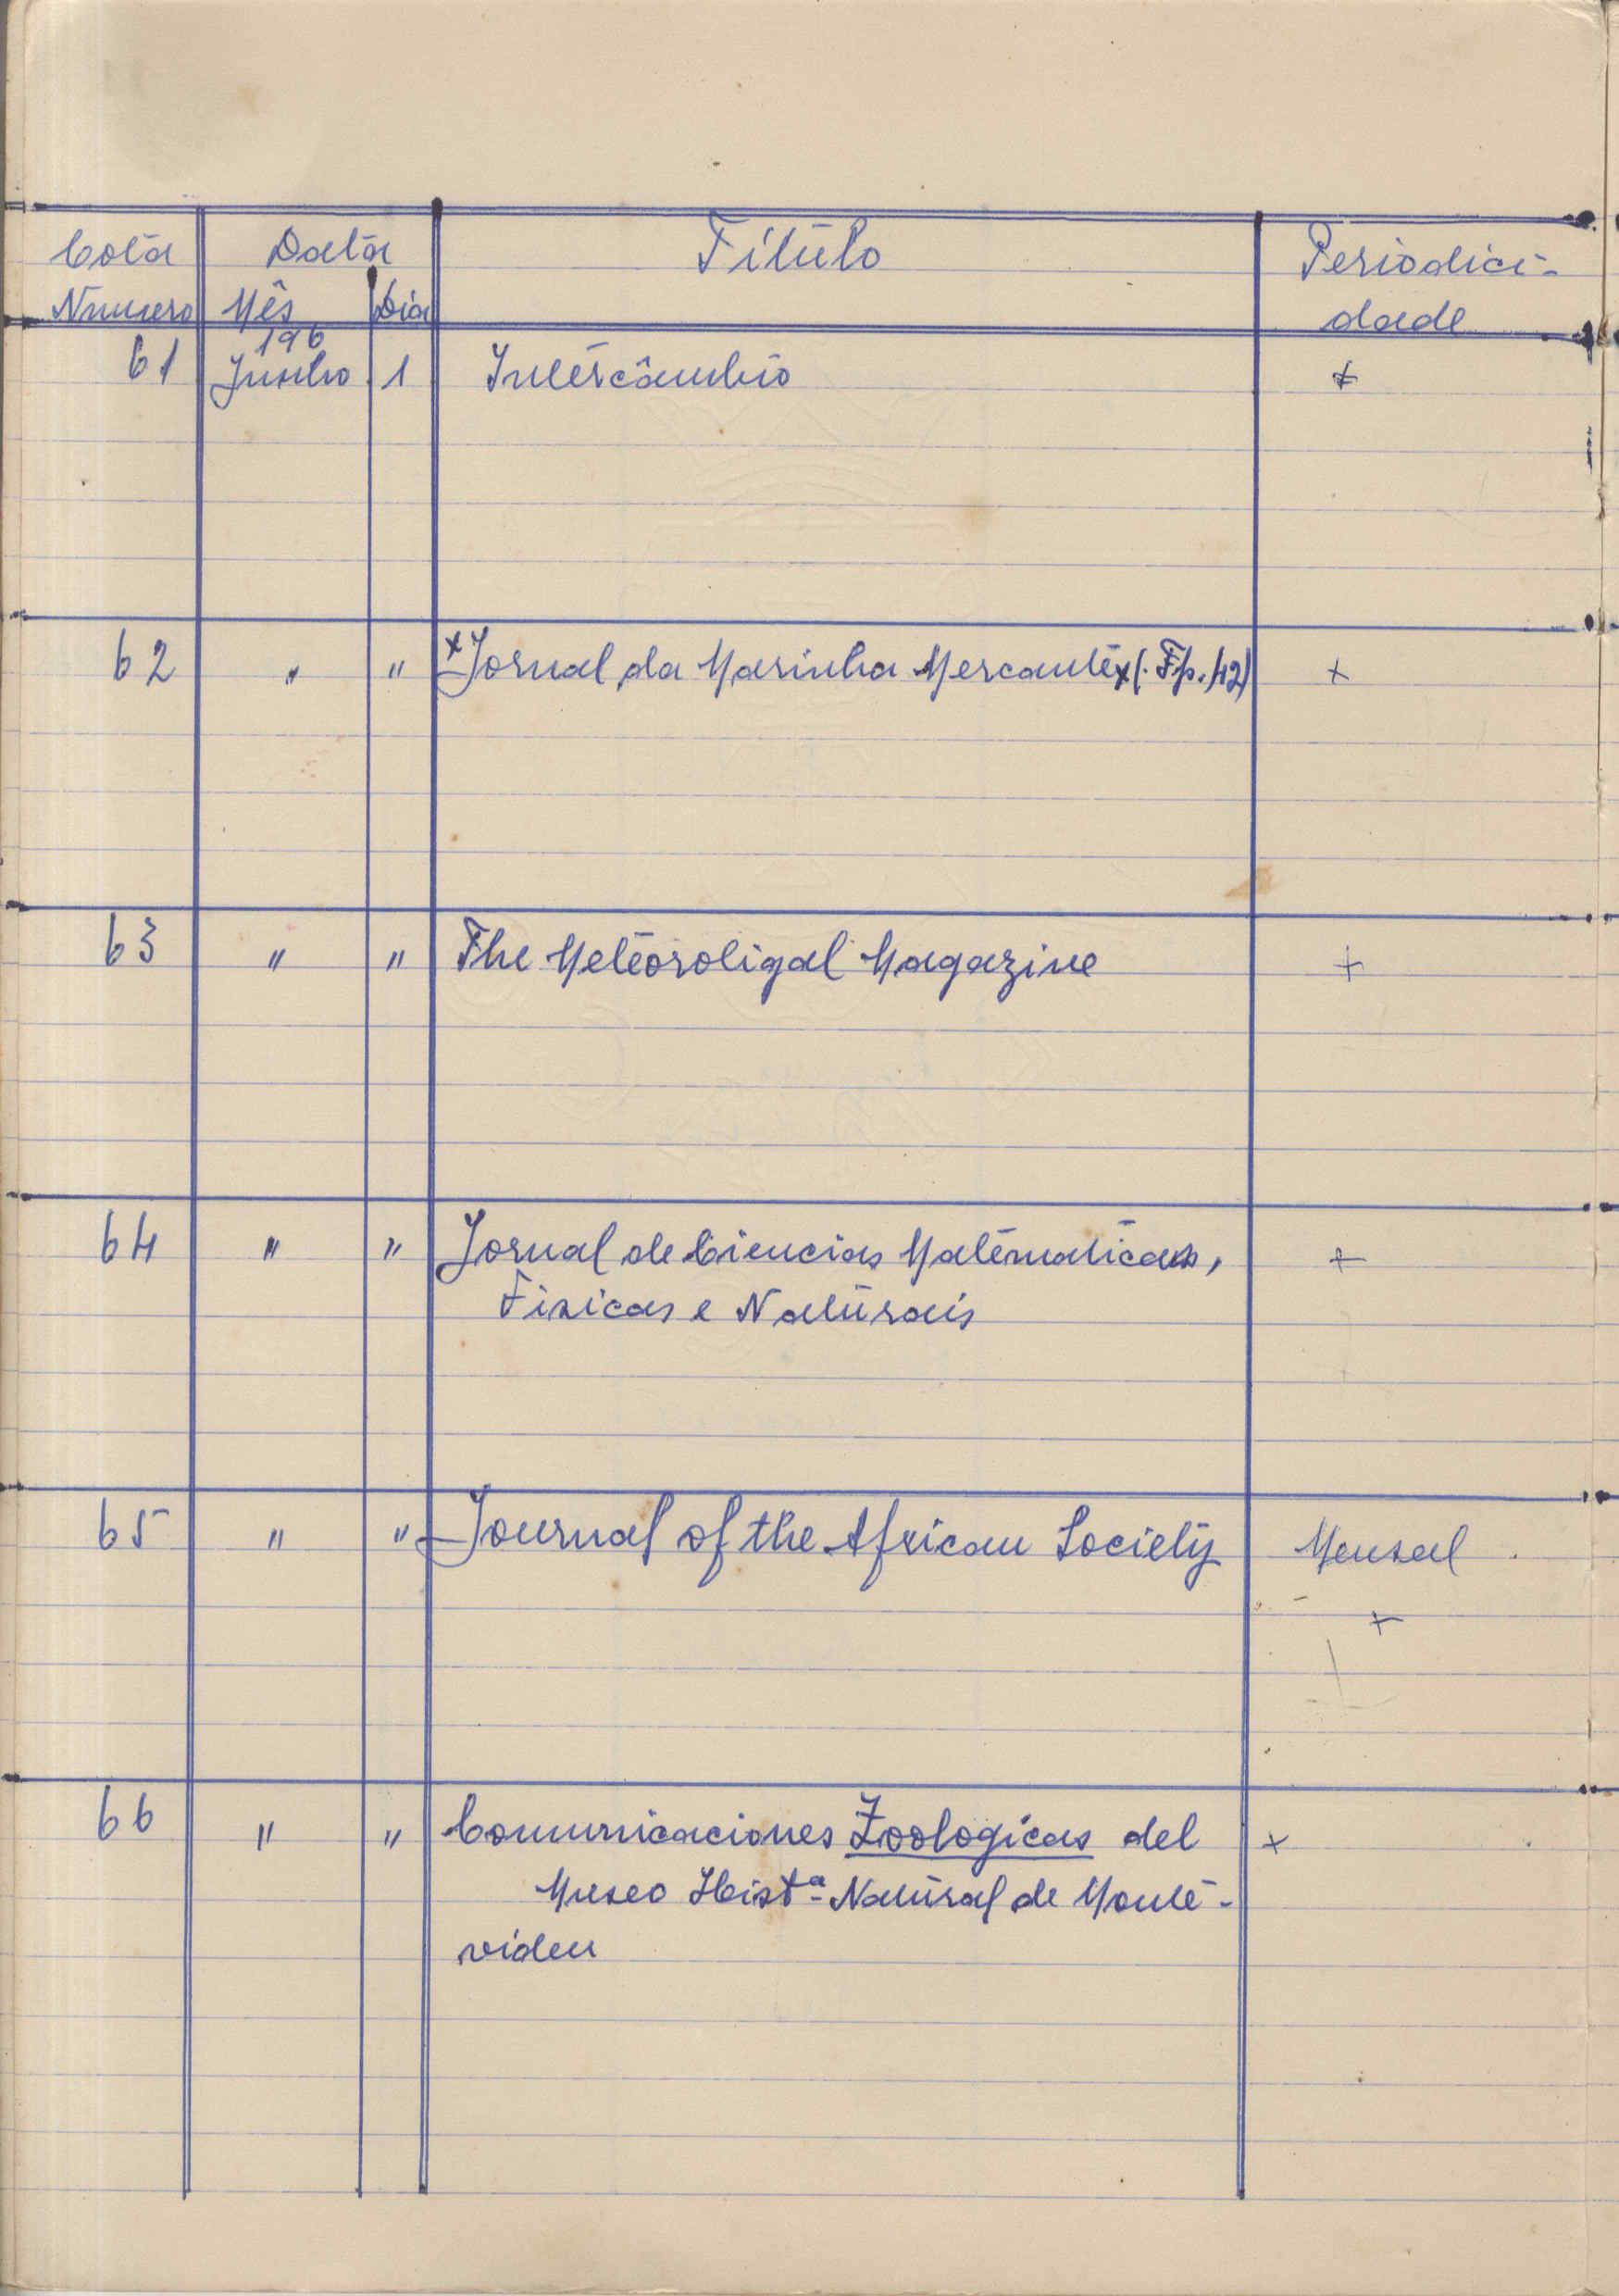 Cota Data Titulo Periodici-
Numero Mês Dia dade
196
61 Junho 1 Intercâmbio +
62 " " x Jornal da Marinha Mercante x (Fp. 42) +
63 " " The Meteoroligal Magazine +
64 " " Jornal de Ciencias Matematicas, +
Fisicas e Naturais
65 " " Journal of the African Society Mensal
+
66 " " Comunicaciones Zoologicas del +
Museo Histª Natural de Monte-
videu